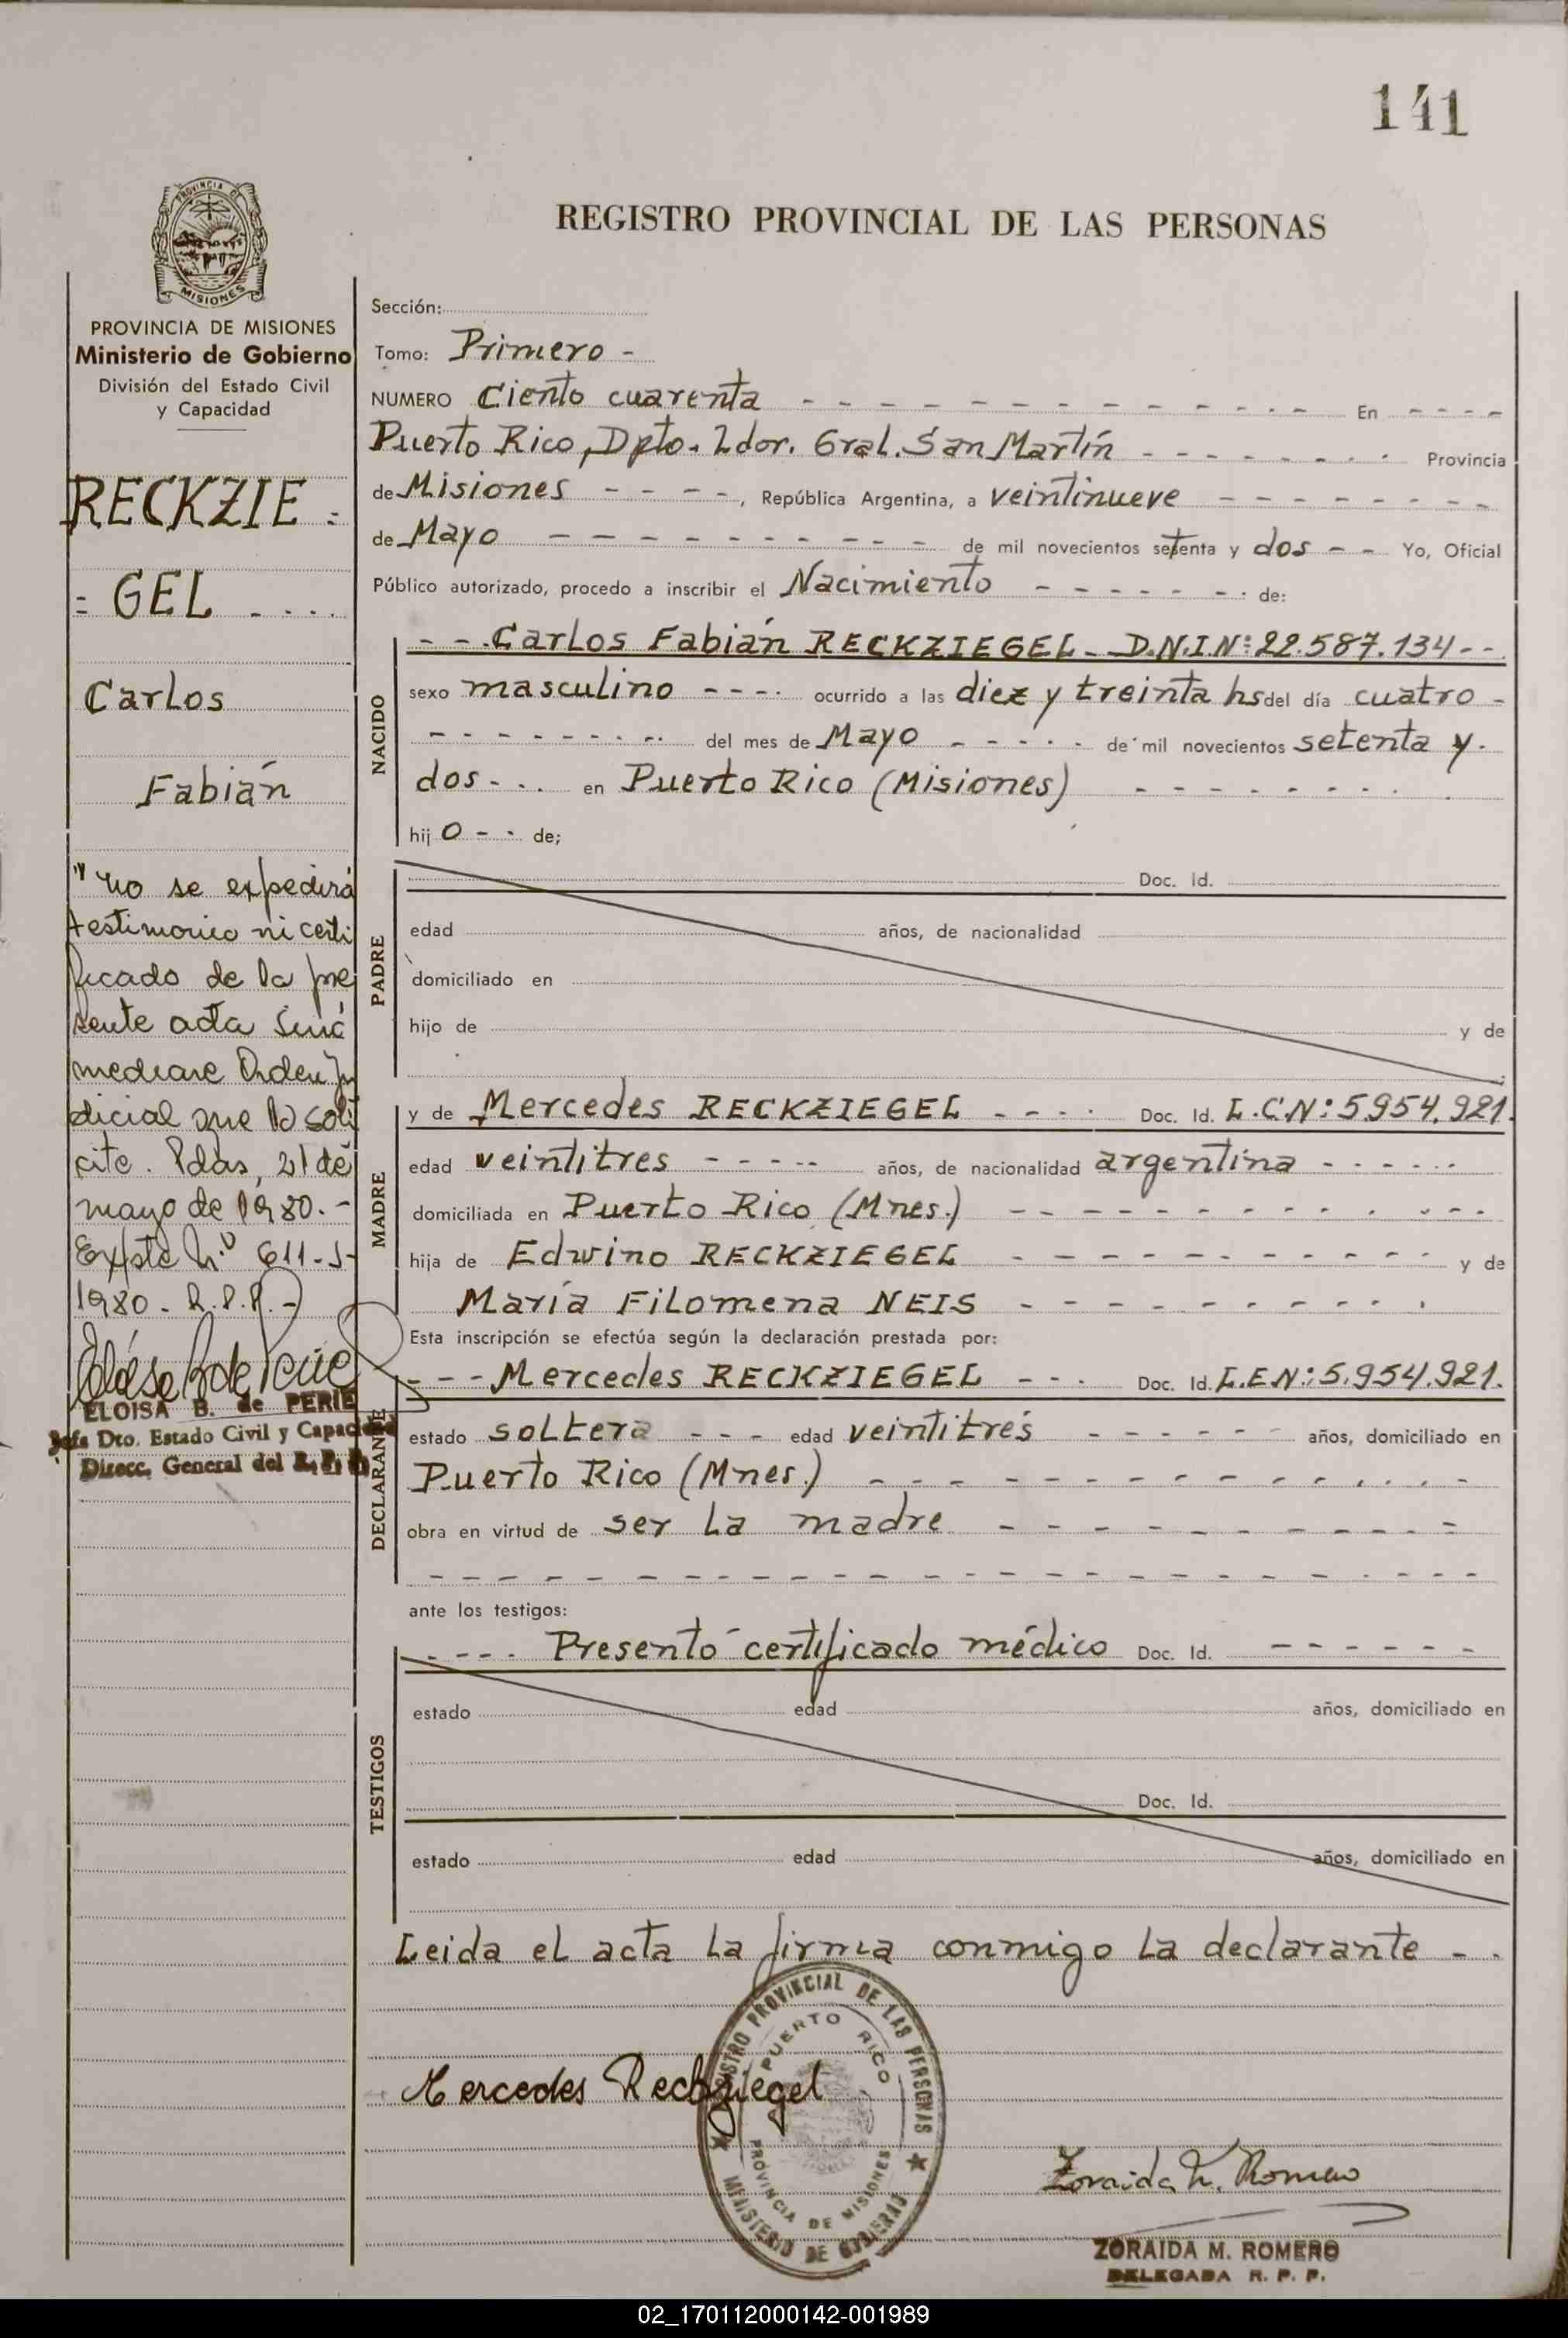 141
PROVINCIA DE
MISIONES
REGISTRO PROVINCIAL DE LAS PERSONAS
PROVINCIA DE MISIONES
Ministerio de Gobierno
División del Estado Civil
y Capacidad
RECKZIE =
= GEL - - - -
Carlos
Fabián
"No se expedirá
testimonio ni certi
ficado de la pre
sente acta sinó
mediare Orden Ju
dicial que lo soli
cite. Pdas, 21 de
mayo de 1980.-
Expte N.º 611-J-
1980 - R.P.P.-
ELOISA B. de PERIE
Jefa Dto. Estado Civil y Capacidad
Direcc. General del R. P. P.
Sección:
Tomo: Primero -
NUMERO Ciento cuarenta - - - - - - - - - - - - En - - - -
Puerto Rico, Dpto. Ldor. Gral. San Martín - - - - - - - - Provincia
de Misiones - - - -, República Argentina, a veintinueve - - - - - - - -
de Mayo - - - - - - - - - - de mil novecientos setenta y dos - - Yo, Oficial
Público autorizado, procedo a inscribir el Nacimiento - - - - - - - de:
NACIDO
- - - Carlos Fabián RECKZIEGEL - D.N.I.Nº: 22.587.134 - -
sexo masculino - - - - ocurrido a las diez y treinta hs del día cuatro -
- - - - - - - - del mes de Mayo - - - - - de mil novecientos setenta y -
dos - - - en Puerto Rico (Misiones) - - - - - - - -
hij o - - de;
PADRE
Doc. Id.
edad años, de nacionalidad
domiciliado en
hijo de y de
MADRE
y de Mercedes RECKZIEGEL - - - - Doc. Id. L.C.Nº: 5.954.921.
edad veintitres - - - - - años, de nacionalidad argentina - - - - - -
domiciliada en Puerto Rico (Mnes.) - - - - - - - - - - - -
hija de Edwino RECKZIEGEL - - - - - - - - - - y de
María Filomena NEIS - - - - - - - - - -
Esta inscripción se efectúa según la declaración prestada por:
DECLARANTE
- - - Mercedes RECKZIEGEL - - - Doc. Id. L.E.Nº: 5.954.921.
estado soltera - - - edad veintitrés - - - - - - años, domiciliado en
Puerto Rico (Mnes.) - - - - - - - - - - - - - -
obra en virtud de ser la madre - - - - - - - - - - -
- - - - - - - - - - - - - - - - - - - - - - - -
ante los testigos:
TESTIGOS
- - - - Presentó certificado médico Doc. Id. - - - - - -
estado edad años, domiciliado en
Doc. Id.
estado edad años, domiciliado en
Leida el acta la firma conmigo la declarante - -
REGISTRO PROVINCIAL DE LAS PERSONAS
PUERTO RICO
PROVINCIA DE MISIONES
MINISTERIO DE GOBIERNO
Mercedes Reckziegel
Zoraida M. Romero
ZORAIDA M. ROMERO
DELEGADA R. P. P.
02_170112000142-001989